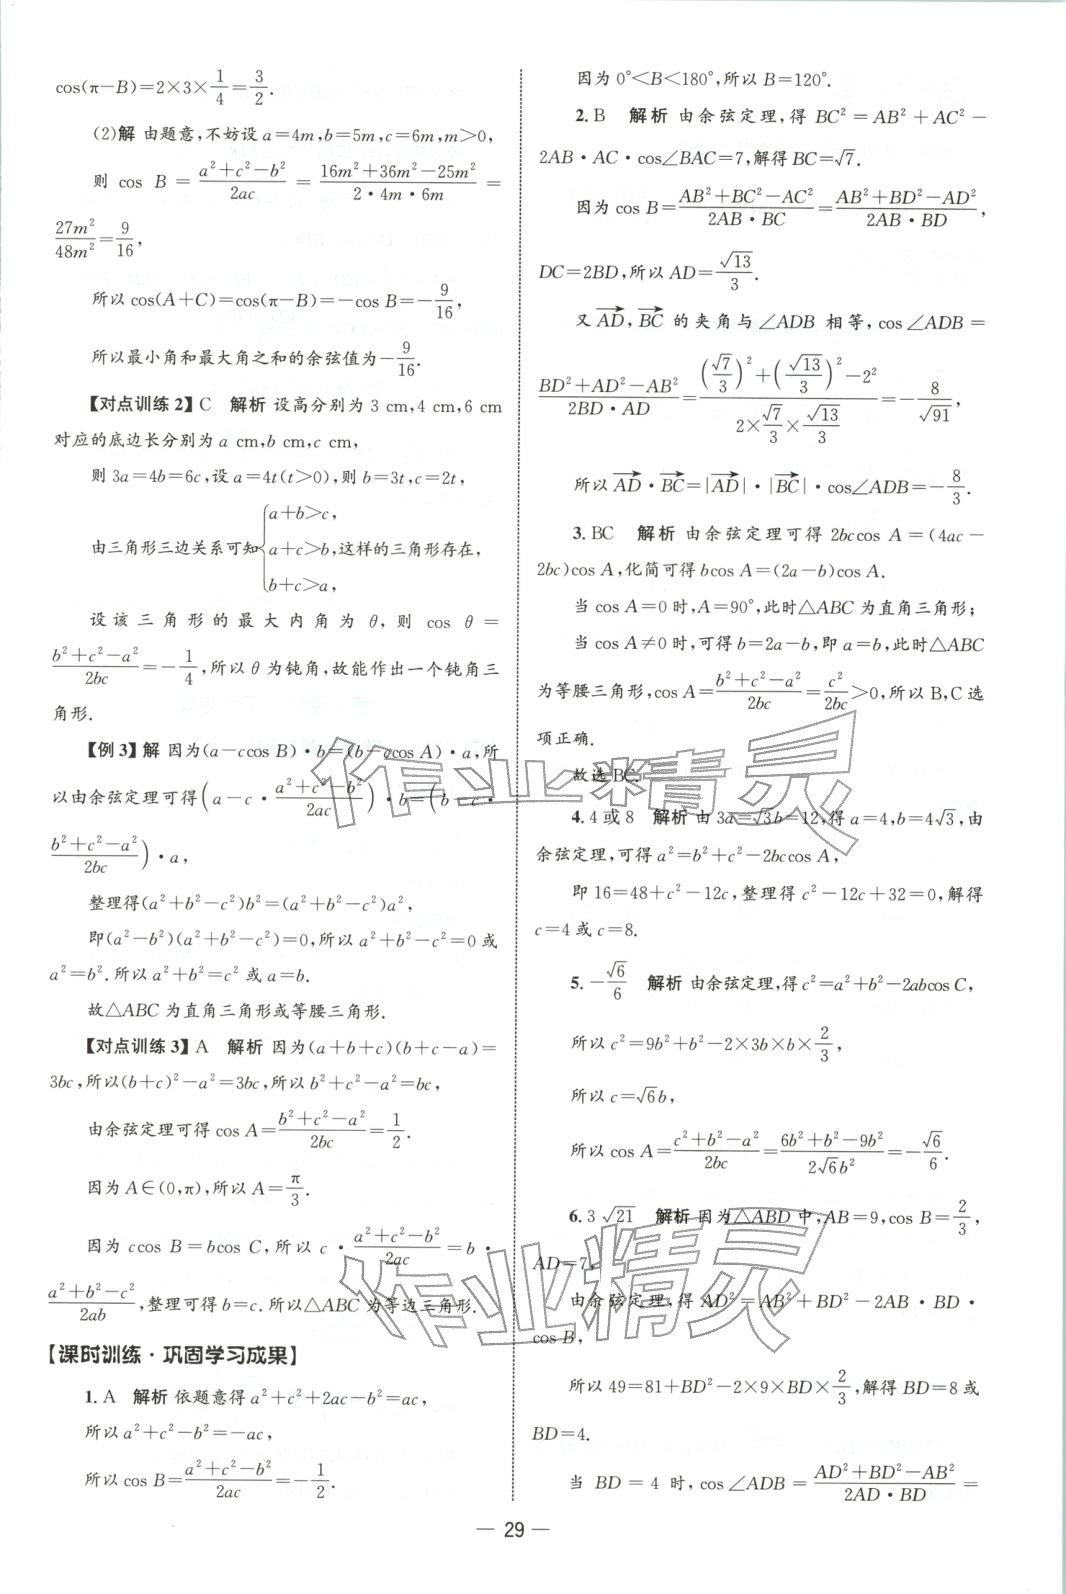 cos(π－B)＝2×3×1/4＝3/2.
(2)解 由题意,不妨设 a＝4m,b＝5m,c＝6m,m＞0,
则 cos B＝(a²＋c²－b²)/(2ac)＝(16m²＋36m²－25m²)/(2·4m·6m)＝
27m²/48m²＝9/16,
所以 cos(A＋C)＝cos(π－B)＝－cos B＝－9/16,
所以最小角和最大角之和的余弦值为－9/16.
【对点训练2】C 解析 设高分别为 3 cm,4 cm,6 cm
对应的底边长分别为 a cm,b cm,c cm,
则 3a＝4b＝6c,设 a＝4t(t＞0),则 b＝3t,c＝2t,
由三角形三边关系可知{a＋b＞c, a＋c＞b, b＋c＞a,这样的三角形存在,
设该三角形的最大内角为 θ,则 cos θ＝
(b²＋c²－a²)/(2bc)＝－1/4,所以 θ 为钝角,故能作出一个钝角三
角形.
【例3】解 因为(a－ccos B)·b＝(b－ccos A)·a,所
以由余弦定理可得(a－c·(a²＋c²－b²)/(2ac))·b＝(b－c·
(b²＋c²－a²)/(2bc))·a,
整理得(a²＋b²－c²)b²＝(a²＋b²－c²)a²,
即(a²－b²)(a²＋b²－c²)＝0,所以 a²＋b²－c²＝0 或
a²＝b².所以 a²＋b²＝c² 或 a＝b.
故△ABC 为直角三角形或等腰三角形.
【对点训练3】A 解析 因为(a＋b＋c)(b＋c－a)＝
3bc,所以(b＋c)²－a²＝3bc,所以 b²＋c²－a²＝bc,
由余弦定理可得 cos A＝(b²＋c²－a²)/(2bc)＝1/2.
因为 A∈(0,π),所以 A＝π/3.
因为 ccos B＝bcos C,所以 c·(a²＋c²－b²)/(2ac)＝b·
(a²＋b²－c²)/(2ab),整理可得 b＝c.所以△ABC 为等边三角形.
【课时训练·巩固学习成果】
1. A 解析 依题意得 a²＋c²＋2ac－b²＝ac,
所以 a²＋c²－b²＝－ac,
所以 cos B＝(a²＋c²－b²)/(2ac)＝－1/2.
因为 0°＜B＜180°,所以 B＝120°.
2. B 解析 由余弦定理,得 BC²＝AB²＋AC²－
2AB·AC·cos∠BAC＝7,解得 BC＝√7.
因为 cos B＝(AB²＋BC²－AC²)/(2AB·BC)＝(AB²＋BD²－AD²)/(2AB·BD),
DC＝2BD,所以 AD＝√13/3.
又 →AD,→BC 的夹角与∠ADB 相等,cos∠ADB＝
(BD²＋AD²－AB²)/(2BD·AD)＝((√7/3)²＋(√13/3)²－2²)/(2×√7/3×√13/3)＝－8/√91,
所以 →AD·→BC＝|→AD|·|→BC|·cos∠ADB＝－8/3.
3. BC 解析 由余弦定理可得 2bccos A＝(4ac－
2bc)cos A,化简可得 bcos A＝(2a－b)cos A.
当 cos A＝0 时,A＝90°,此时△ABC 为直角三角形;
当 cos A≠0 时,可得 b＝2a－b,即 a＝b,此时△ABC
为等腰三角形,cos A＝(b²＋c²－a²)/(2bc)＝c²/(2bc)＞0,所以 B,C 选
项正确.
故选 BC.
4. 4 或 8 解析 由 3a＝√3b＝12,得 a＝4,b＝4√3,由
余弦定理,可得 a²＝b²＋c²－2bccos A,
即 16＝48＋c²－12c,整理得 c²－12c＋32＝0,解得
c＝4 或 c＝8.
5. －√6/6 解析 由余弦定理,得 c²＝a²＋b²－2abcos C,
所以 c²＝9b²＋b²－2×3b×b×2/3,
所以 c＝√6b,
所以 cos A＝(c²＋b²－a²)/(2bc)＝(6b²＋b²－9b²)/(2√6b²)＝－√6/6.
6. 3√21 解析 因为△ABD 中,AB＝9,cos B＝2/3,
AD＝7,
由余弦定理,得 AD²＝AB²＋BD²－2AB·BD·
cos B,
所以 49＝81＋BD²－2×9×BD×2/3,解得 BD＝8 或
BD＝4.
当 BD＝4 时,cos∠ADB＝(AD²＋BD²－AB²)/(2AD·BD)＝
— 29 —
作业精灵
作业精灵